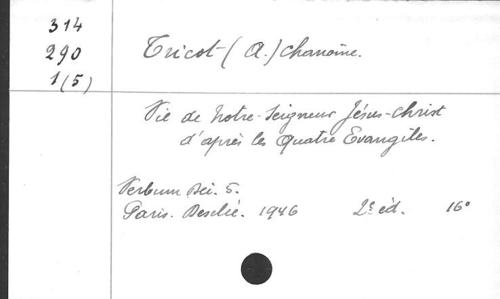 314
290
1(5)
Tricot (A.) Chanoine.
Vie de Notre-Seigneur Jésus-Christ
d'après les Quatre Evangiles.
Verbum Dei. 5.
Paris. Desclée. 1946 2e éd. 16°